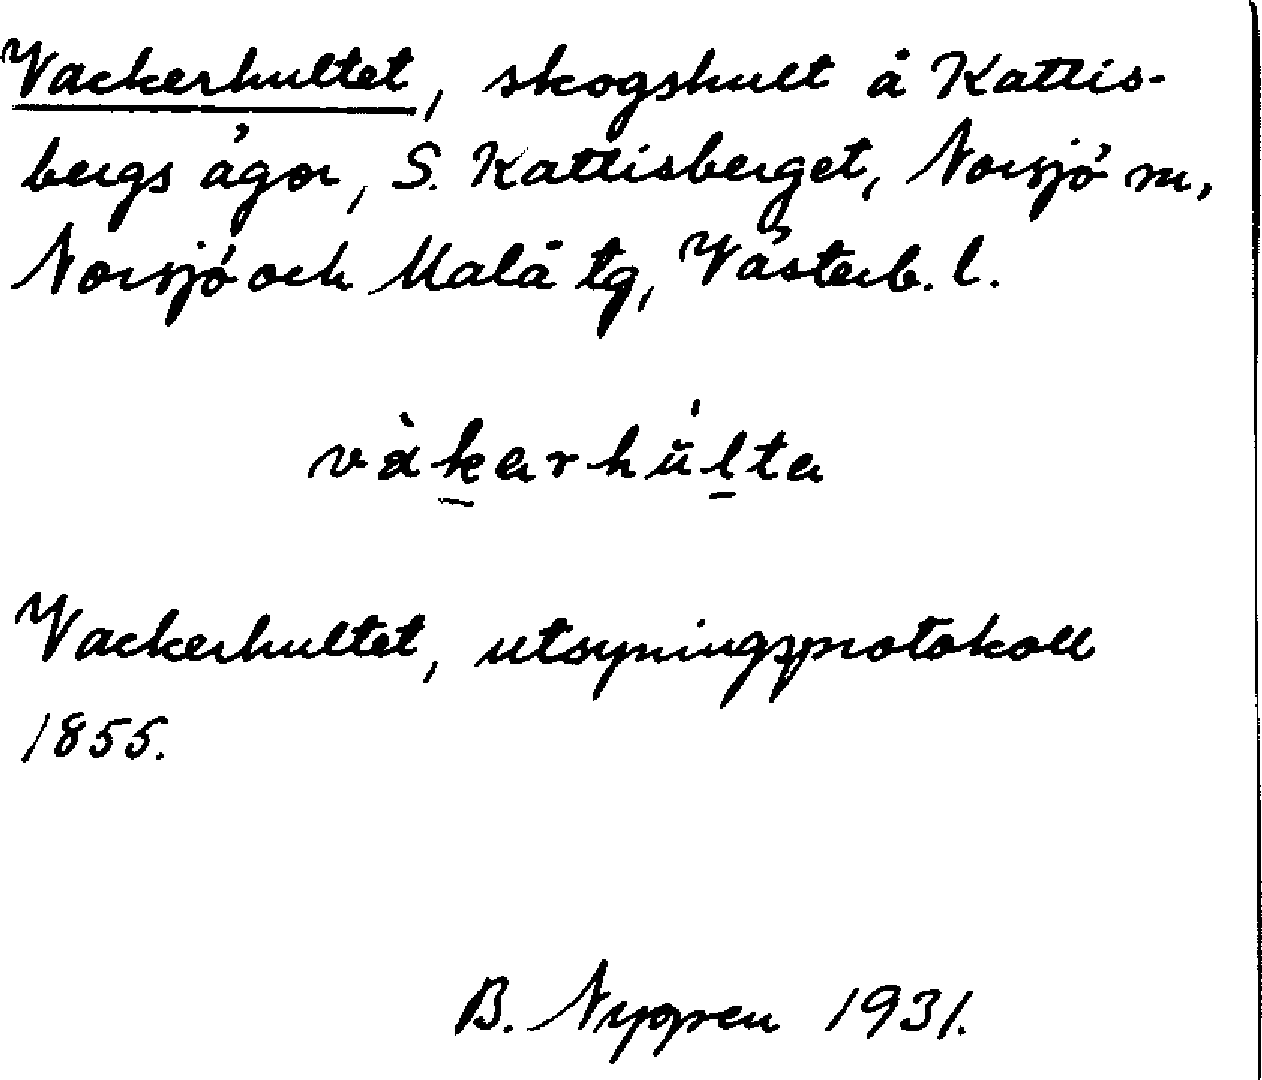 Vackerhultet, skogshult å Kattis-
bergs ägor, S. Kattisberget, Norsjö sn,
Norsjö och Malå tg, Västerb. l.
vàkarhúlta
Vackerhultet, utsyningsprotokoll
1855.
B. Nygren 1931.